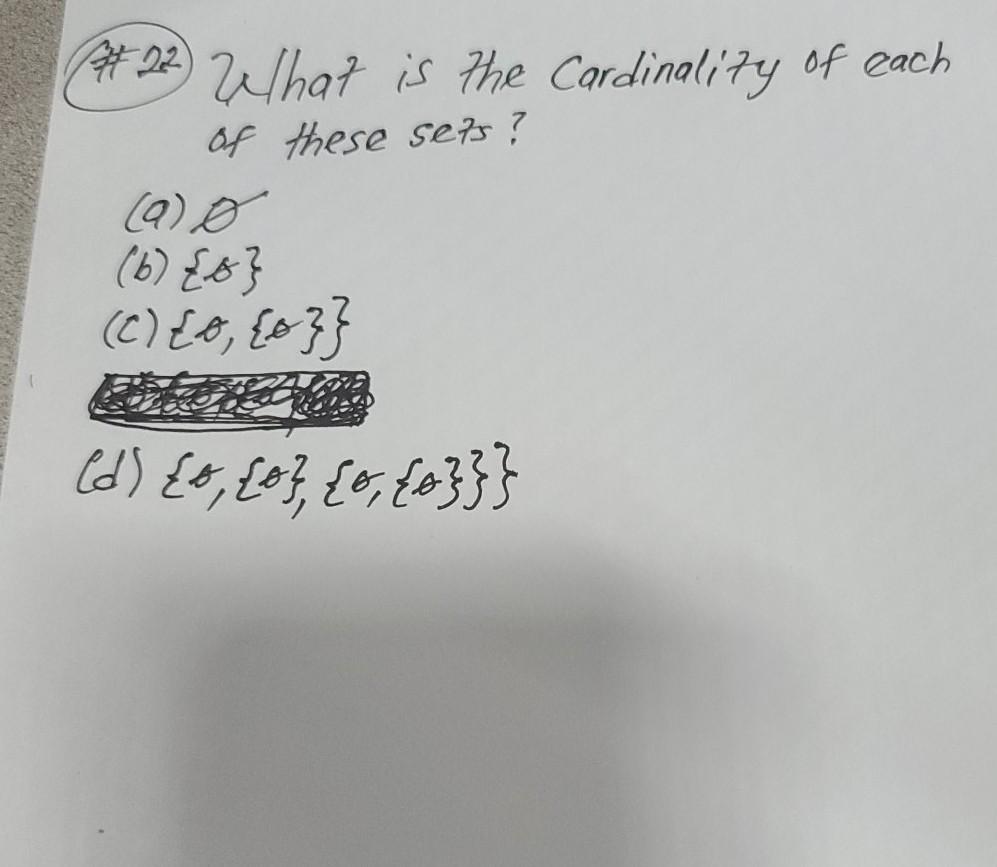 #22 What is the Cardinality of each
of these sets?
(a) ∅
(b) {∅}
(c) {∅, {∅}}
(d) {∅, {∅}, {∅, {∅}}}